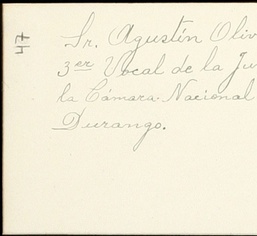 47
Sr. Agustín Oliv
3er Vocal de la Ju
la Cámara Nacional
Durango.